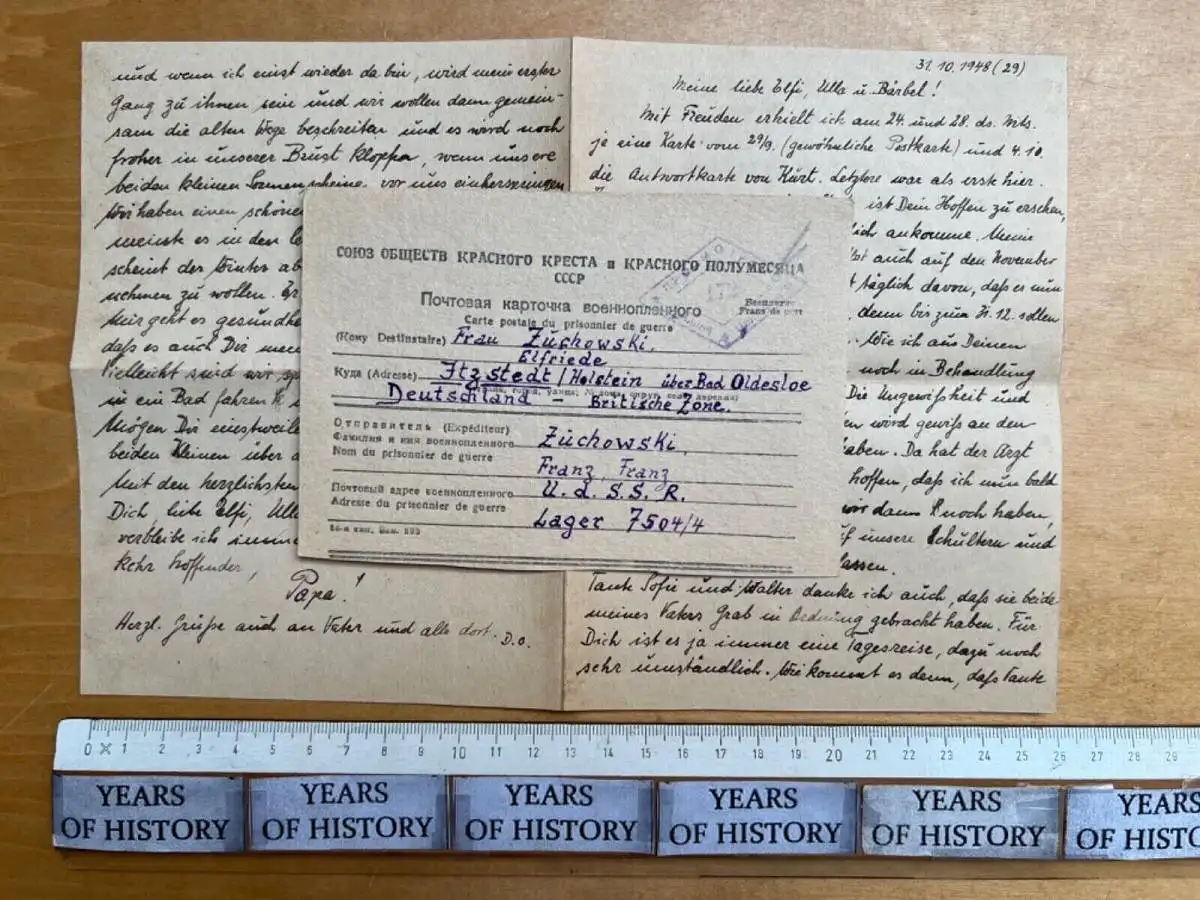 und wenn ich einst wieder da bin, wird mein erster
Gang zu ihnen sein und wir wollen dann gemein-
sam die alten Wege beschreiten und es wird noch
froher in unserer Brust kloppen, wenn unsere
beiden kleinen Sonnenscheine vor uns einherspringen
Wir haben einen schönen
meinte es in den le
scheint der Winter ab
nehmen zu wollen. Er
Mir geht es gesundhe
daß es auch Dir
Vielleicht sind wir
in ein Bad fahren
Mögen Dir einstweile
beiden Kleinen über
Mit den herzlichsten
Dich liebe Elfi, Ull
verbleibe ich imm
kehr hoffender,
Papa!
Herzl. Grüße auch an Vater und alle dort. D.O.
31.10.1948 (29)
Meine liebe Elfi, Ulla u. Bärbel!
Mit Freuden erhielt ich am 24. und 28. ds. Mts.
je eine Karte vom 29/9. (gewöhnliche Postkarte) und 4.10.
die Antwortkarte von Kurt. Letztere war als erste hier.
ist Dein Hoffen zu ersehen,
lich ankomme. Meine
auch auf den November
täglich davon, daß es nun
denn bis zum 31.12. sollen
. Wie ich aus Deinen
noch in Behandlung
Die Ungewißheit und
en wird gewiß an den
aben. Da hat der Arzt
hoffen, daß ich nun bald
wir dann noch haben,
f unsere Schultern und
lassen.
Tante Sofie und Walter danke ich auch, daß sie beide
meines Vaters Grab in Ordnung gebracht haben. Für
Dich ist es ja immer eine Tagesreise, dazu noch
sehr umständlich. Wie kommt es denn, daß Tante
СОЮЗ ОБЩЕСТВ КРАСНОГО КРЕСТА и КРАСНОГО ПОЛУМЕСЯЦА
СССР
Почтовая карточка военнопленного
Carte postale du prisonnier de guerre
Бесплатно
Franc de port
(Кому Destinataire) Frau Zuchowski,
Elfriede
Куда (Adresse) Itzstedt / Holstein über Bad Oldesloe
Deutschland - Britische Zone.
Отправитель (Expéditeur)
Фамилия и имя военнопленного Zuchowski,
Nom du prisonnier de guerre Franz, Franz
Почтовый адрес военнопленного U.d.S.S.R.
Adresse du prisonnier de guerre
Lager 7504/4
0 1 2 3 4 5 6 7 8 9 10 11 12 13 14 15 16 17 18 19 20 21 22 23 24 25 26 27 28 29
YEARS OF HISTORY
YEARS OF HISTORY
YEARS OF HISTORY
YEARS OF HISTORY
YEARS OF HISTORY
YEARS OF HISTO